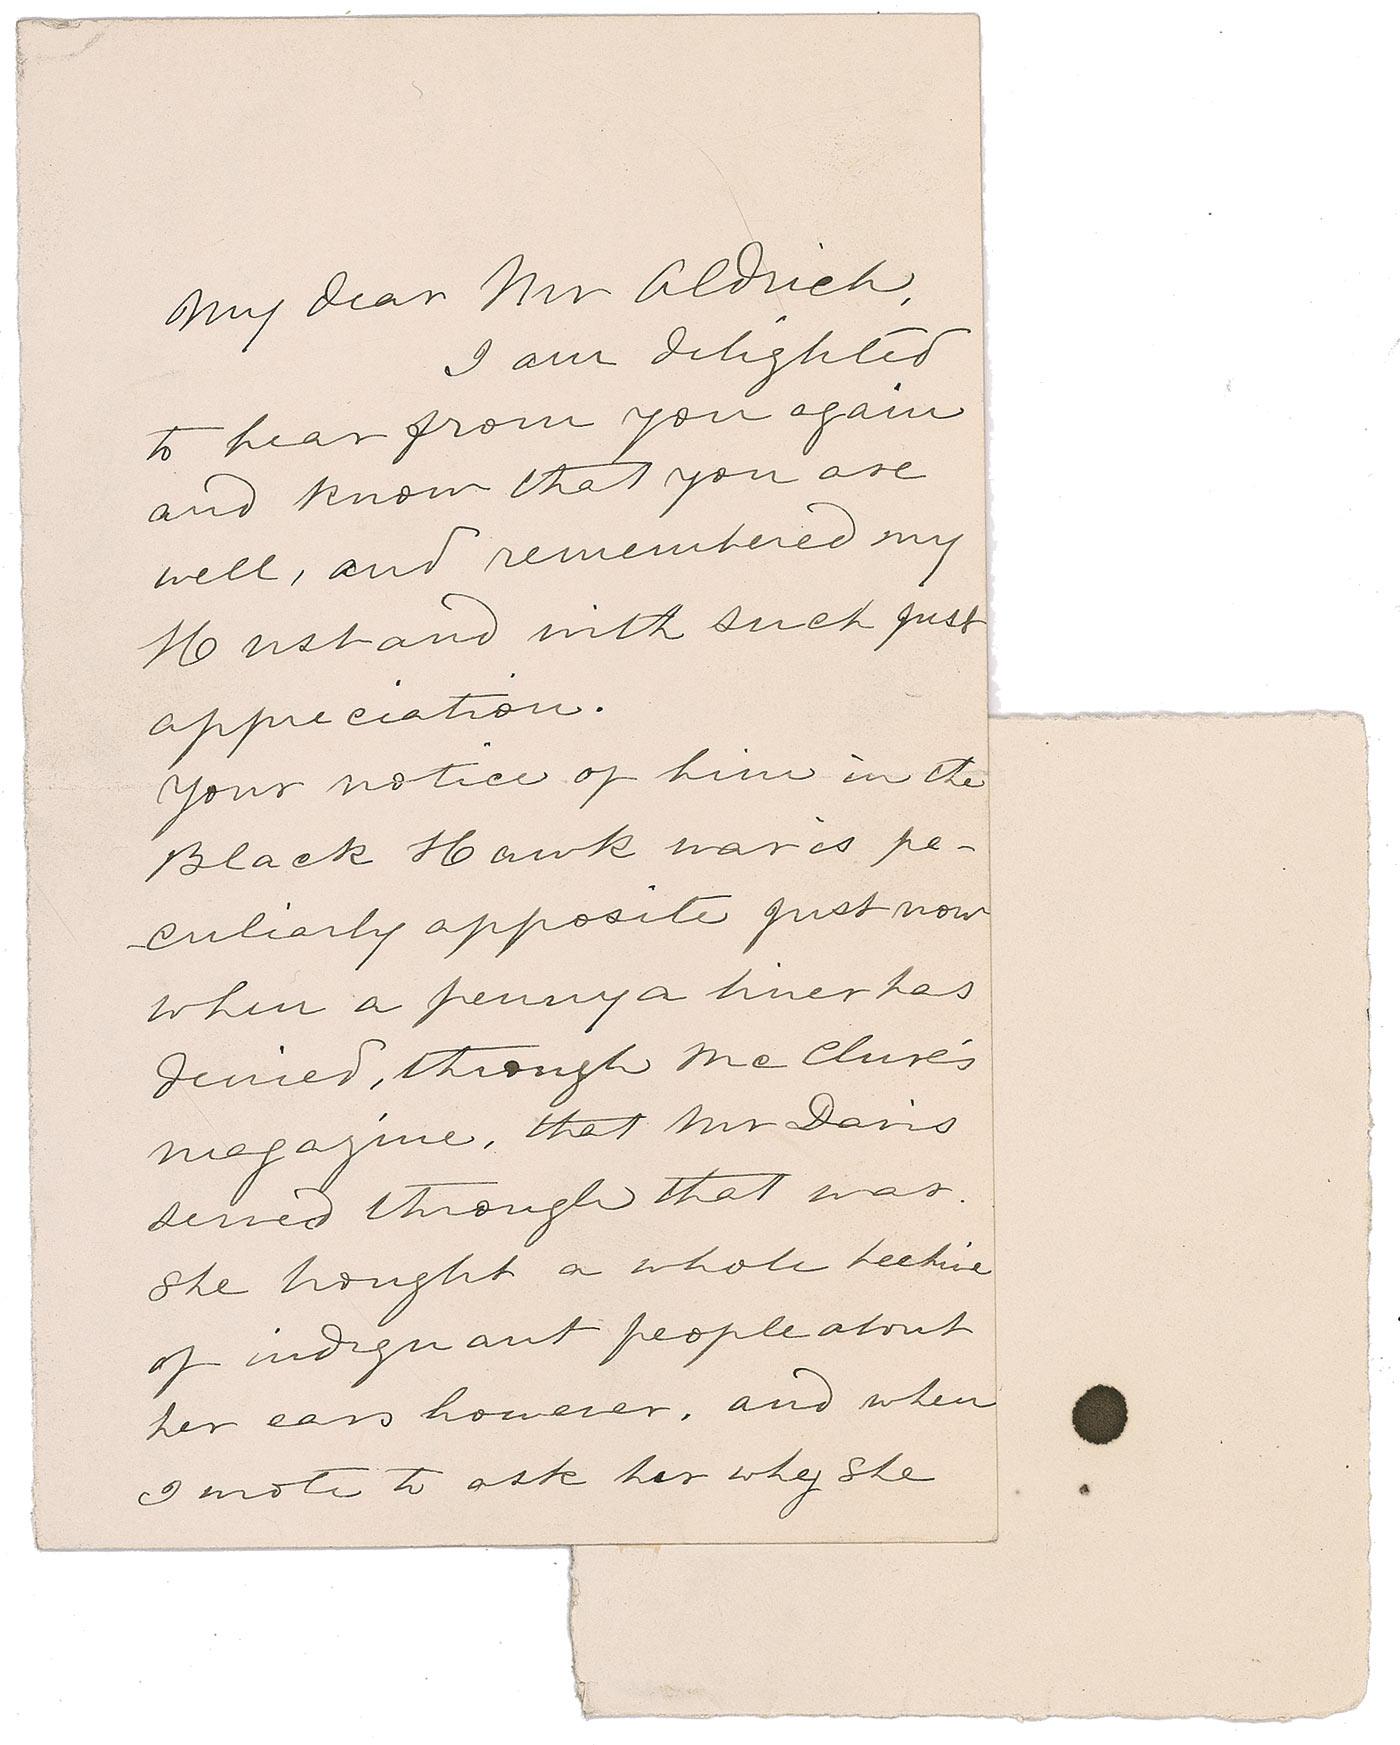 My dear Mr Aldrich,
I am delighted
to hear from you again
and know that you are
well, and remembered my
Husband with such just
appreciation.
Your notice of him in the
Black Hawk war is pe-
culiarly apposite just now
when a penny a liner has
denied, through McClure's
magazine, that Mr Davis
served through that war.
She brought a whole beehive
of indignant people about
her ears however, and when
I wrote to ask her why she